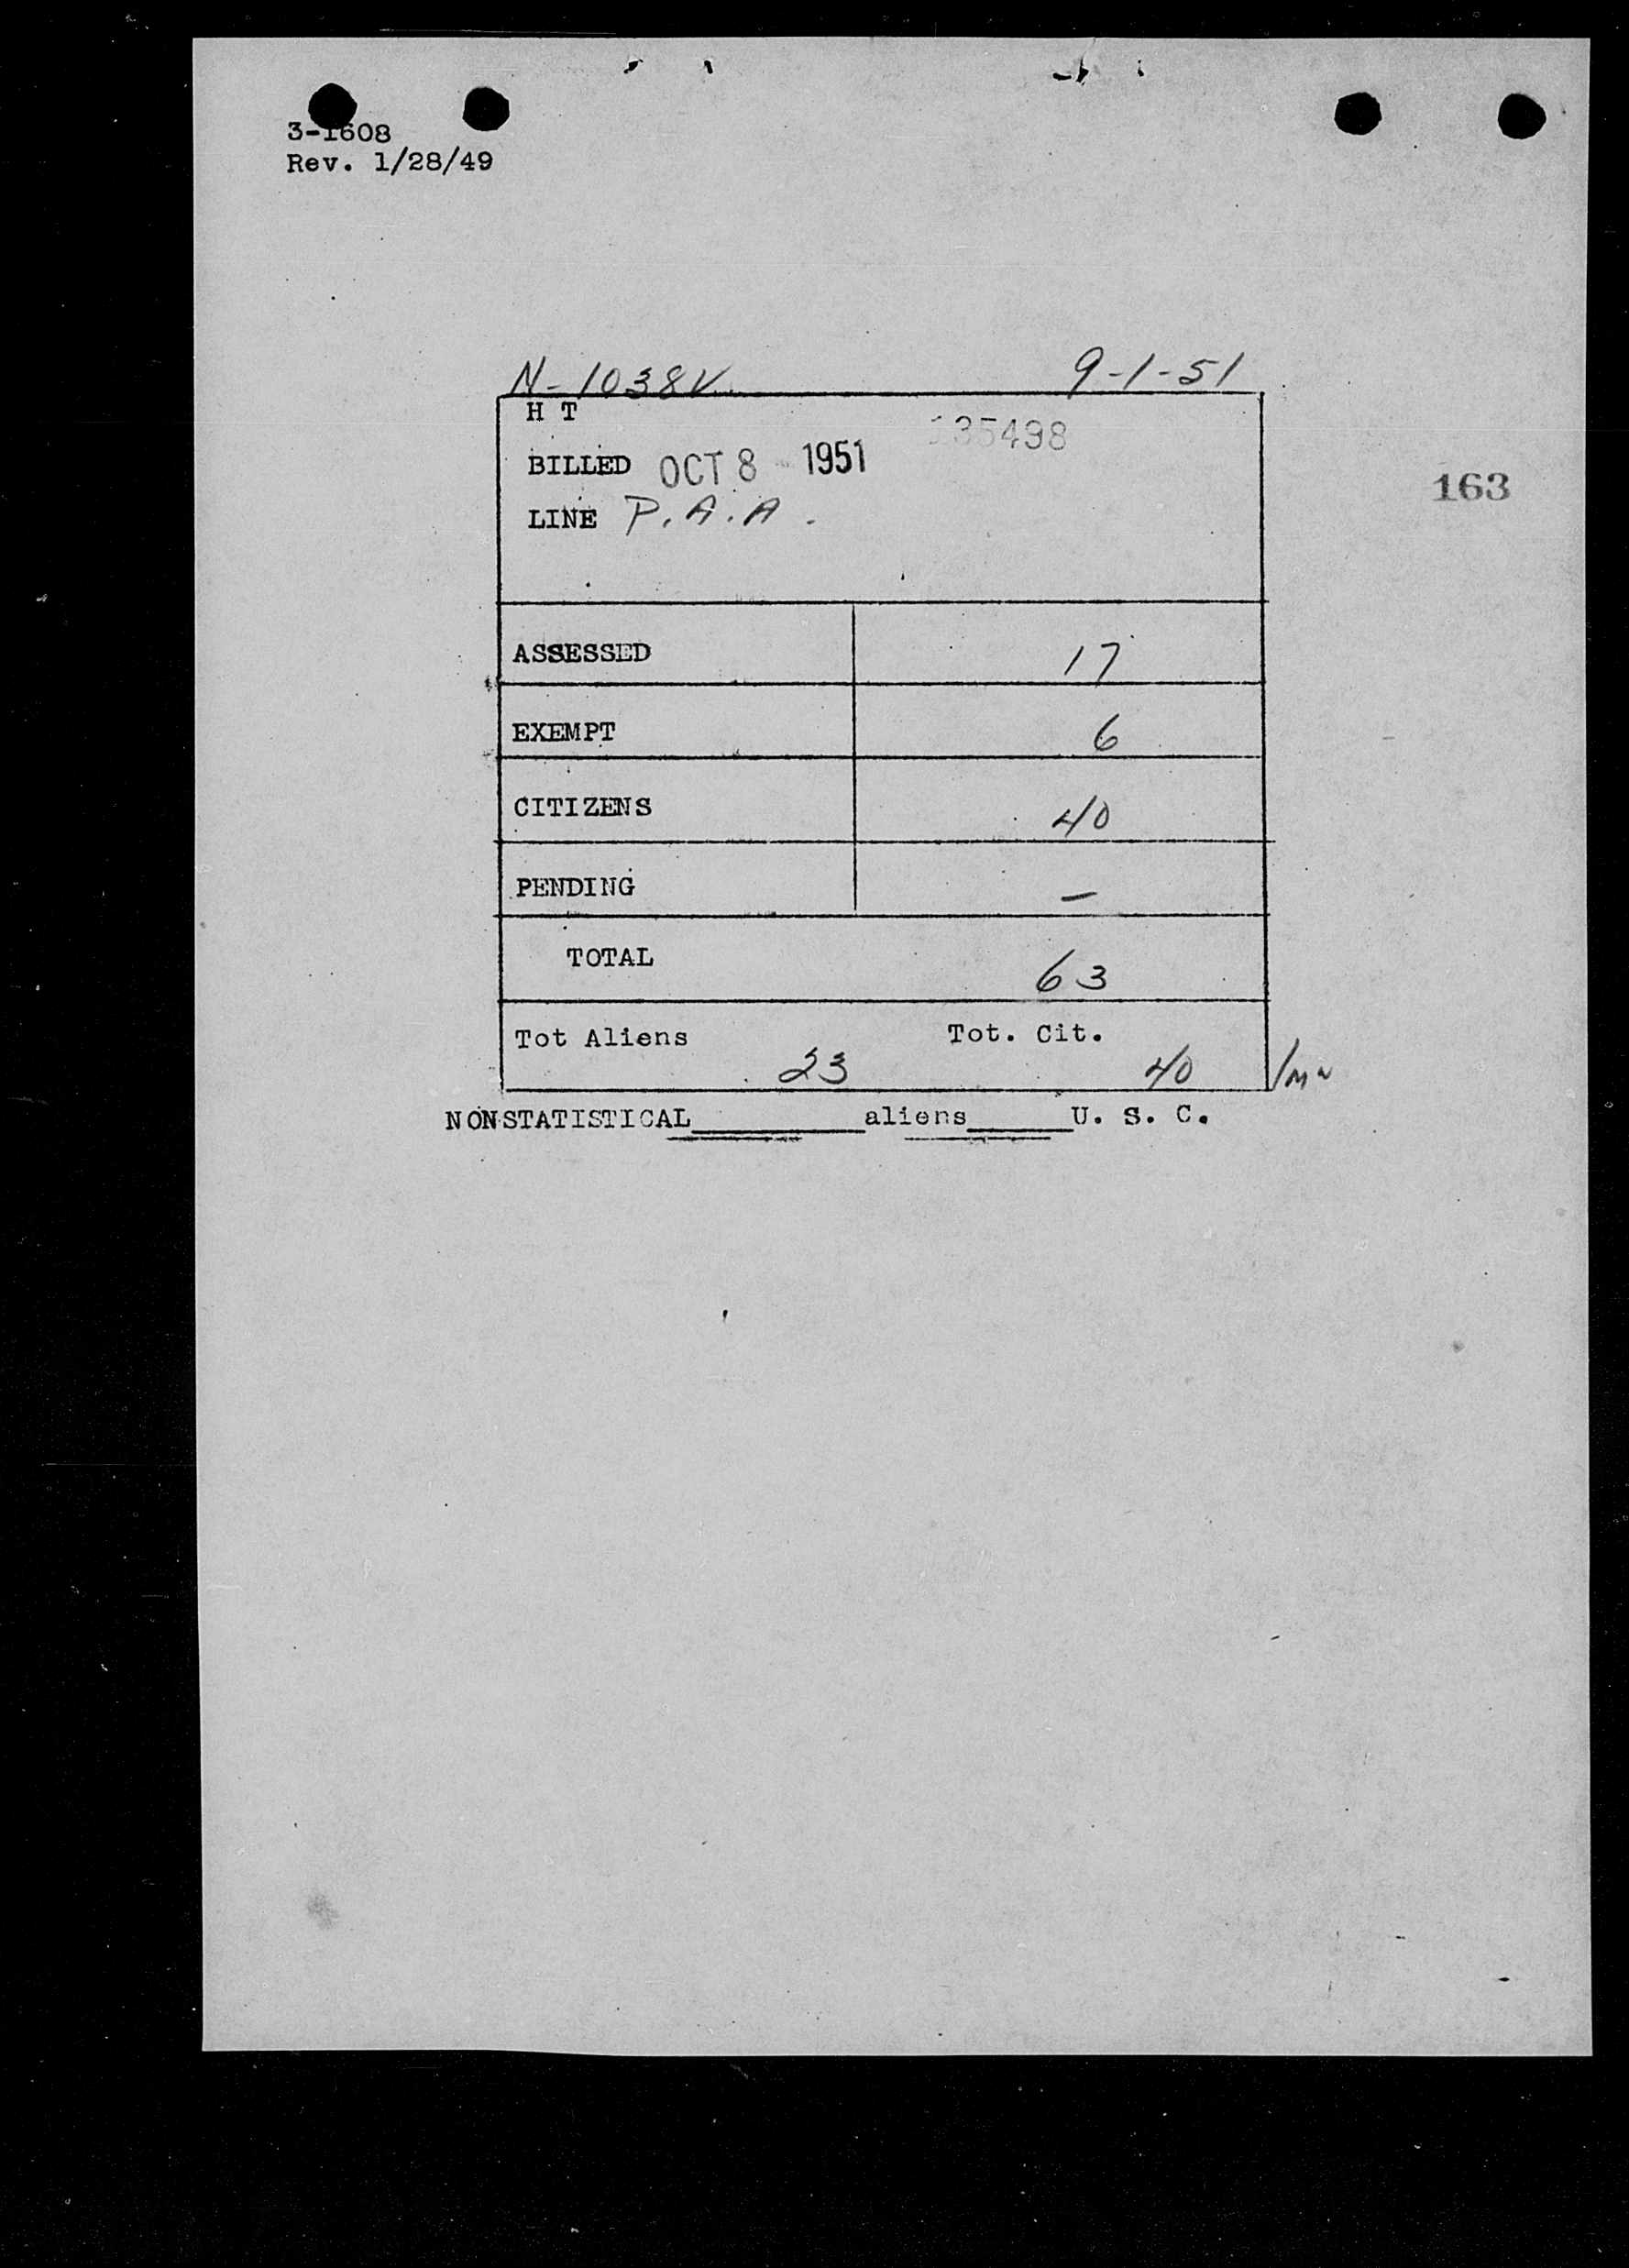 3-1608
Rev. 1/28/49
N-1038V 9-1-51
H T
135498
BILLED OCT 8 1951
163
LINE P.A.A.
ASSESSED 17
EXEMPT 6
CITIZENS 40
PENDING –
TOTAL 63
Tot Aliens Tot. Cit.
23 40
NONSTATISTICAL__________aliens______U. S. C.